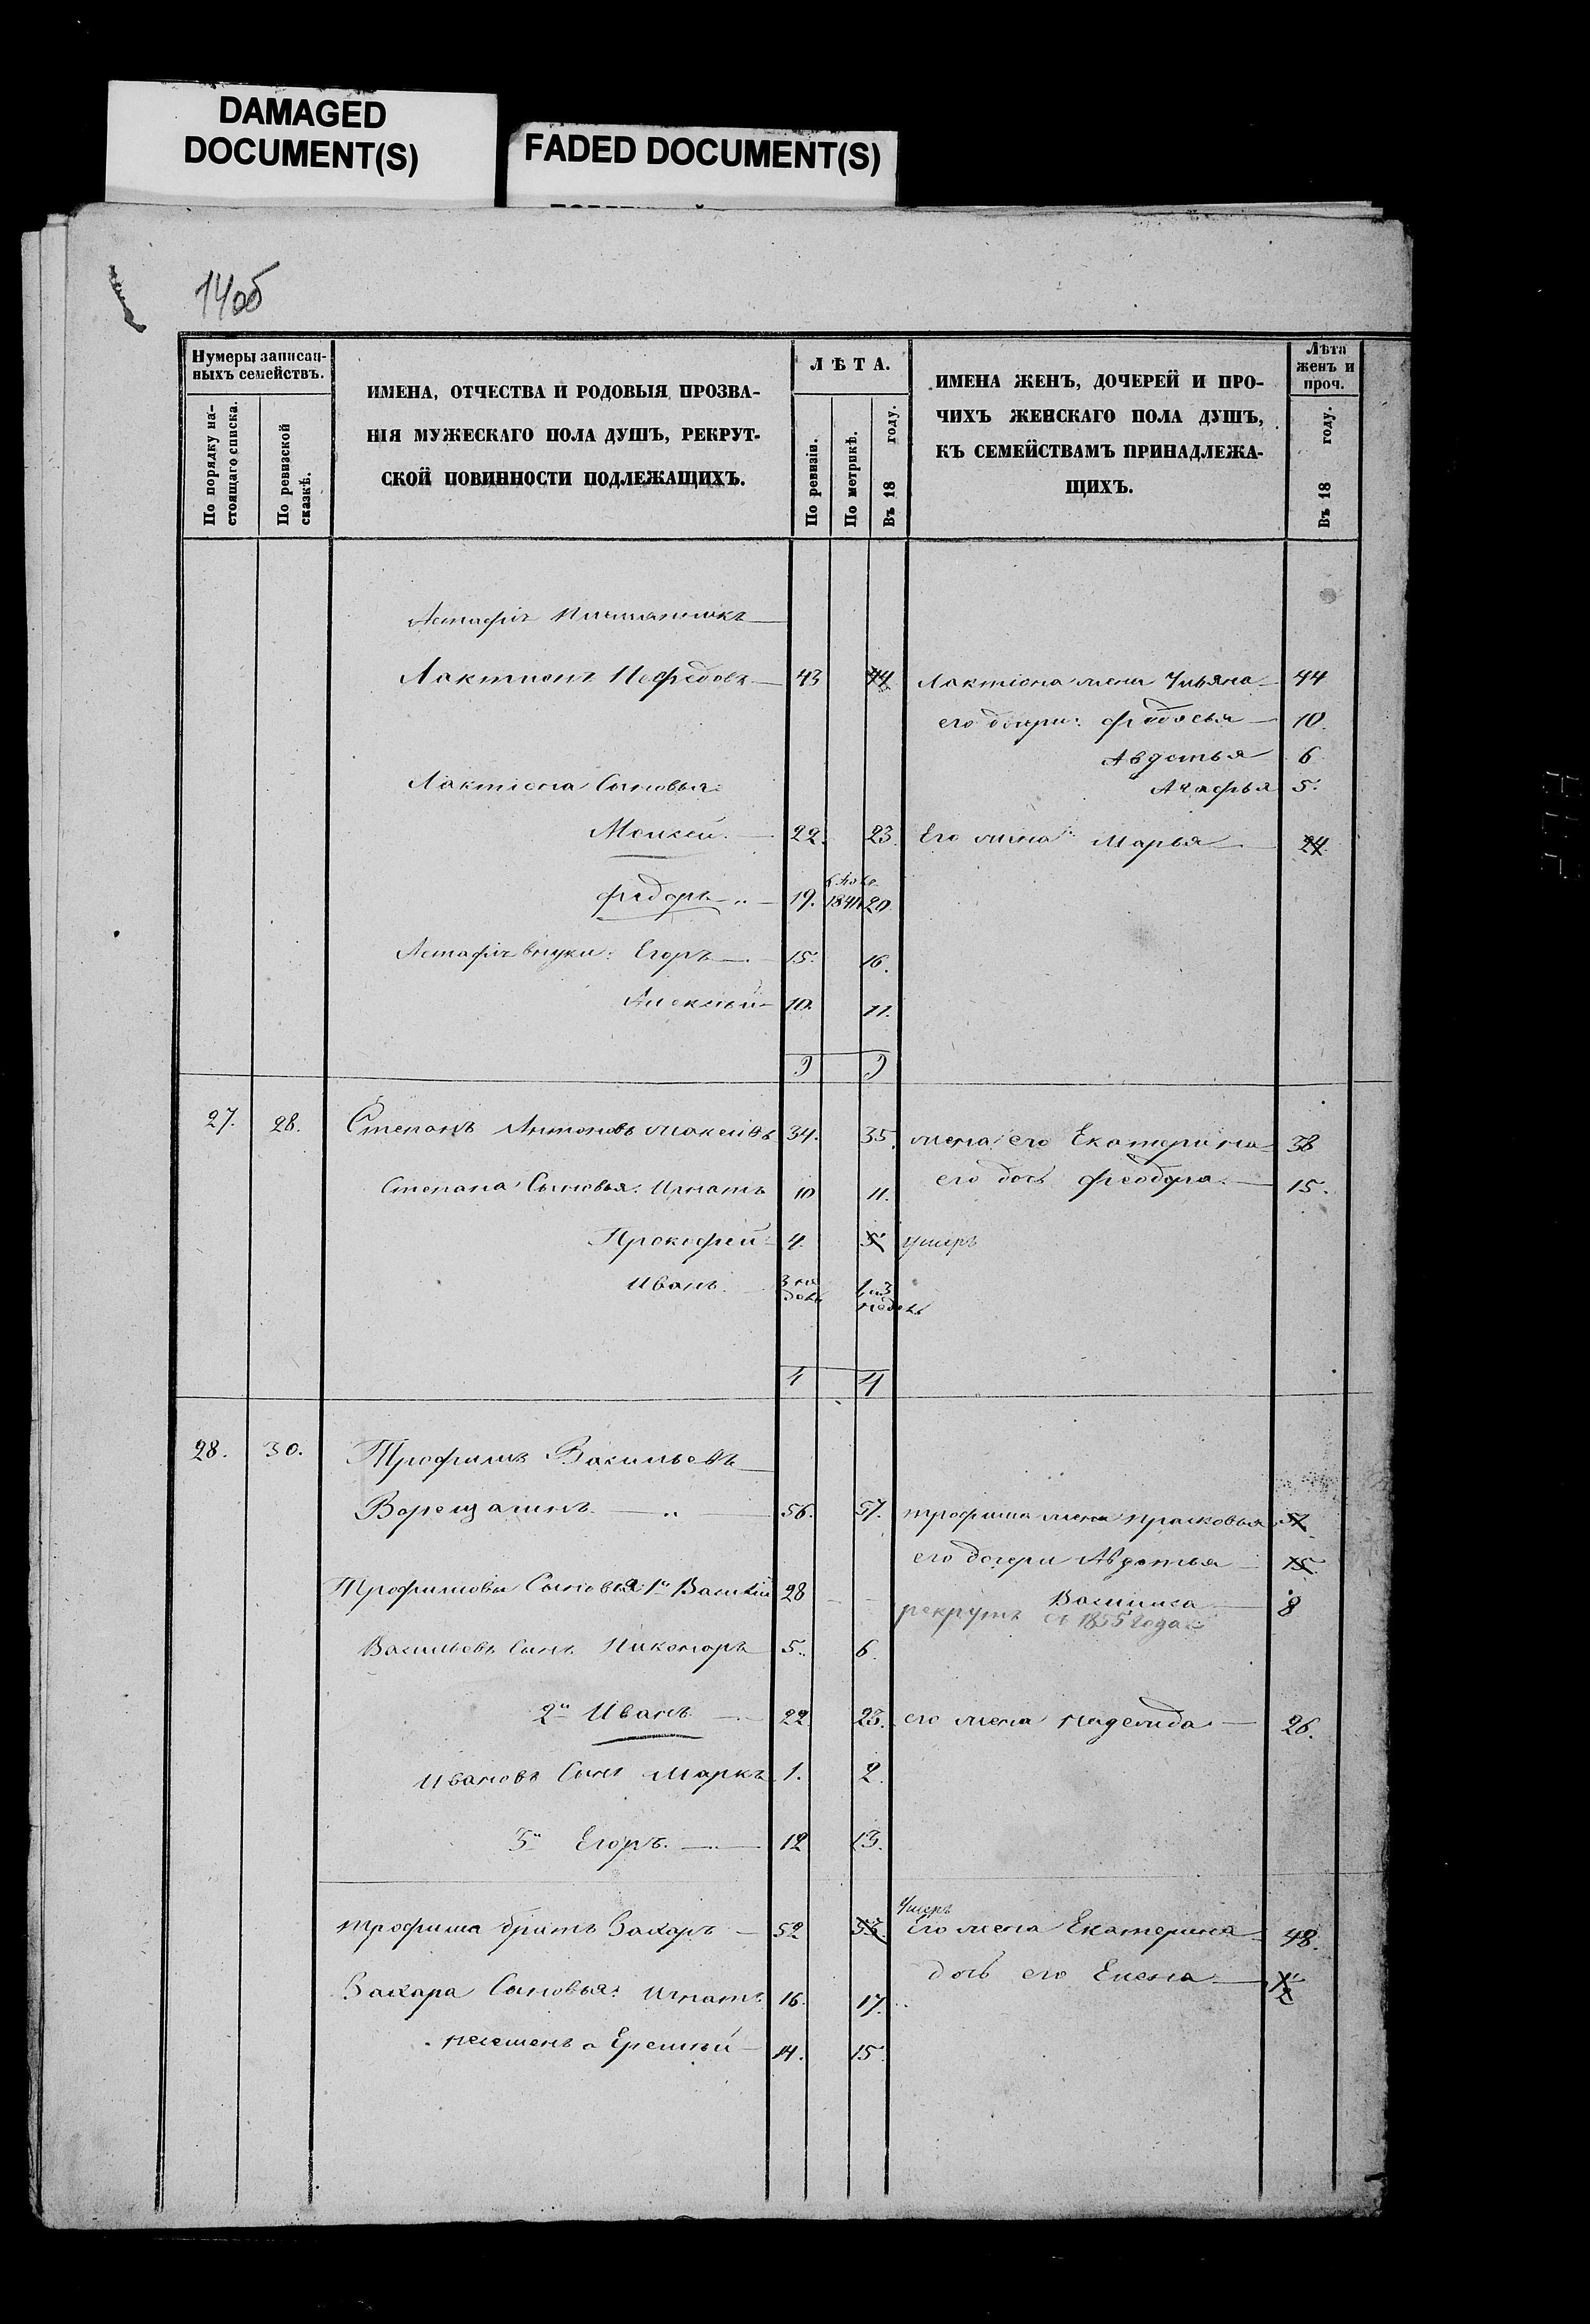 DAMAGED
DOCUMENT(S)
FADED DOCUMENT(S)
14об
Нумеры записан-
ныхъ семействъ.
По порядку на-
стоящаго списка.
По ревизской
сказкѣ.
ИМЕНА, ОТЧЕСТВА И РОДОВЫЯ ПРОЗВА-
НІЯ МУЖЕСКАГО ПОЛА ДУШЪ, РЕКРУТ-
СКОЙ ПОВИННОСТИ ПОДЛЕЖАЩИХЪ.
ЛѢТА.
По ревизіи.
По метрикѣ.
Въ 18 году.
ИМЕНА ЖЕНЪ, ДОЧЕРЕЙ И ПРО-
ЧИХЪ ЖЕНСКАГО ПОЛА ДУШЪ,
КЪ СЕМЕЙСТВАМЪ ПРИНАДЛЕЖА-
ЩИХЪ.
Лѣта
женъ и
проч.
Въ 18 году.
Астафіи
Лактионъ Нефедовъ 43 44 Лактіона жена Ульяна 44
его дочери: Федосья 10.
Авдотья 6
Лактіона Сыновья: Агафья 5.
Мокей. 22. 23. Его жена Марья 24
Федоръ 19. 1841 20.
Астафіи внуки: Егоръ 15. 16.
Алексѣй 10. 11.
9 9
27. 28. Степанъ Антоновъ Мокеивъ 34. 35. жена его Екатерина 38
Степана Сыновья: Игнатъ 10 11. его дочь Феодора. 15.
Прокофей 4. 5 умеръ
Иванъ. 3 не
дель 1 и 3
недель
4 4
28. 30. Трофимъ Васильевъ
Верещагинъ. 56. 57. Трофима жена Прасковья 57.
его дочери Авдотья 15.
Трофимовы Сыновья: 1й Василій 28 Василиса 8
рекрутъ съ 1855 года
Васильевъ Сынъ Никоноръ 5. 6.
2й Иванъ 22 23. его жена Надежда 26.
Ивановъ Сынъ Маркъ 1. 2.
3й Егоръ. 12 13.
умеръ
Трофима братъ Захаръ 52 53. Его жена Екатерина 48.
дочь его Елена
Захара Сыновья: Игнатъ 16. 17.
Еремѣй 14. 15.